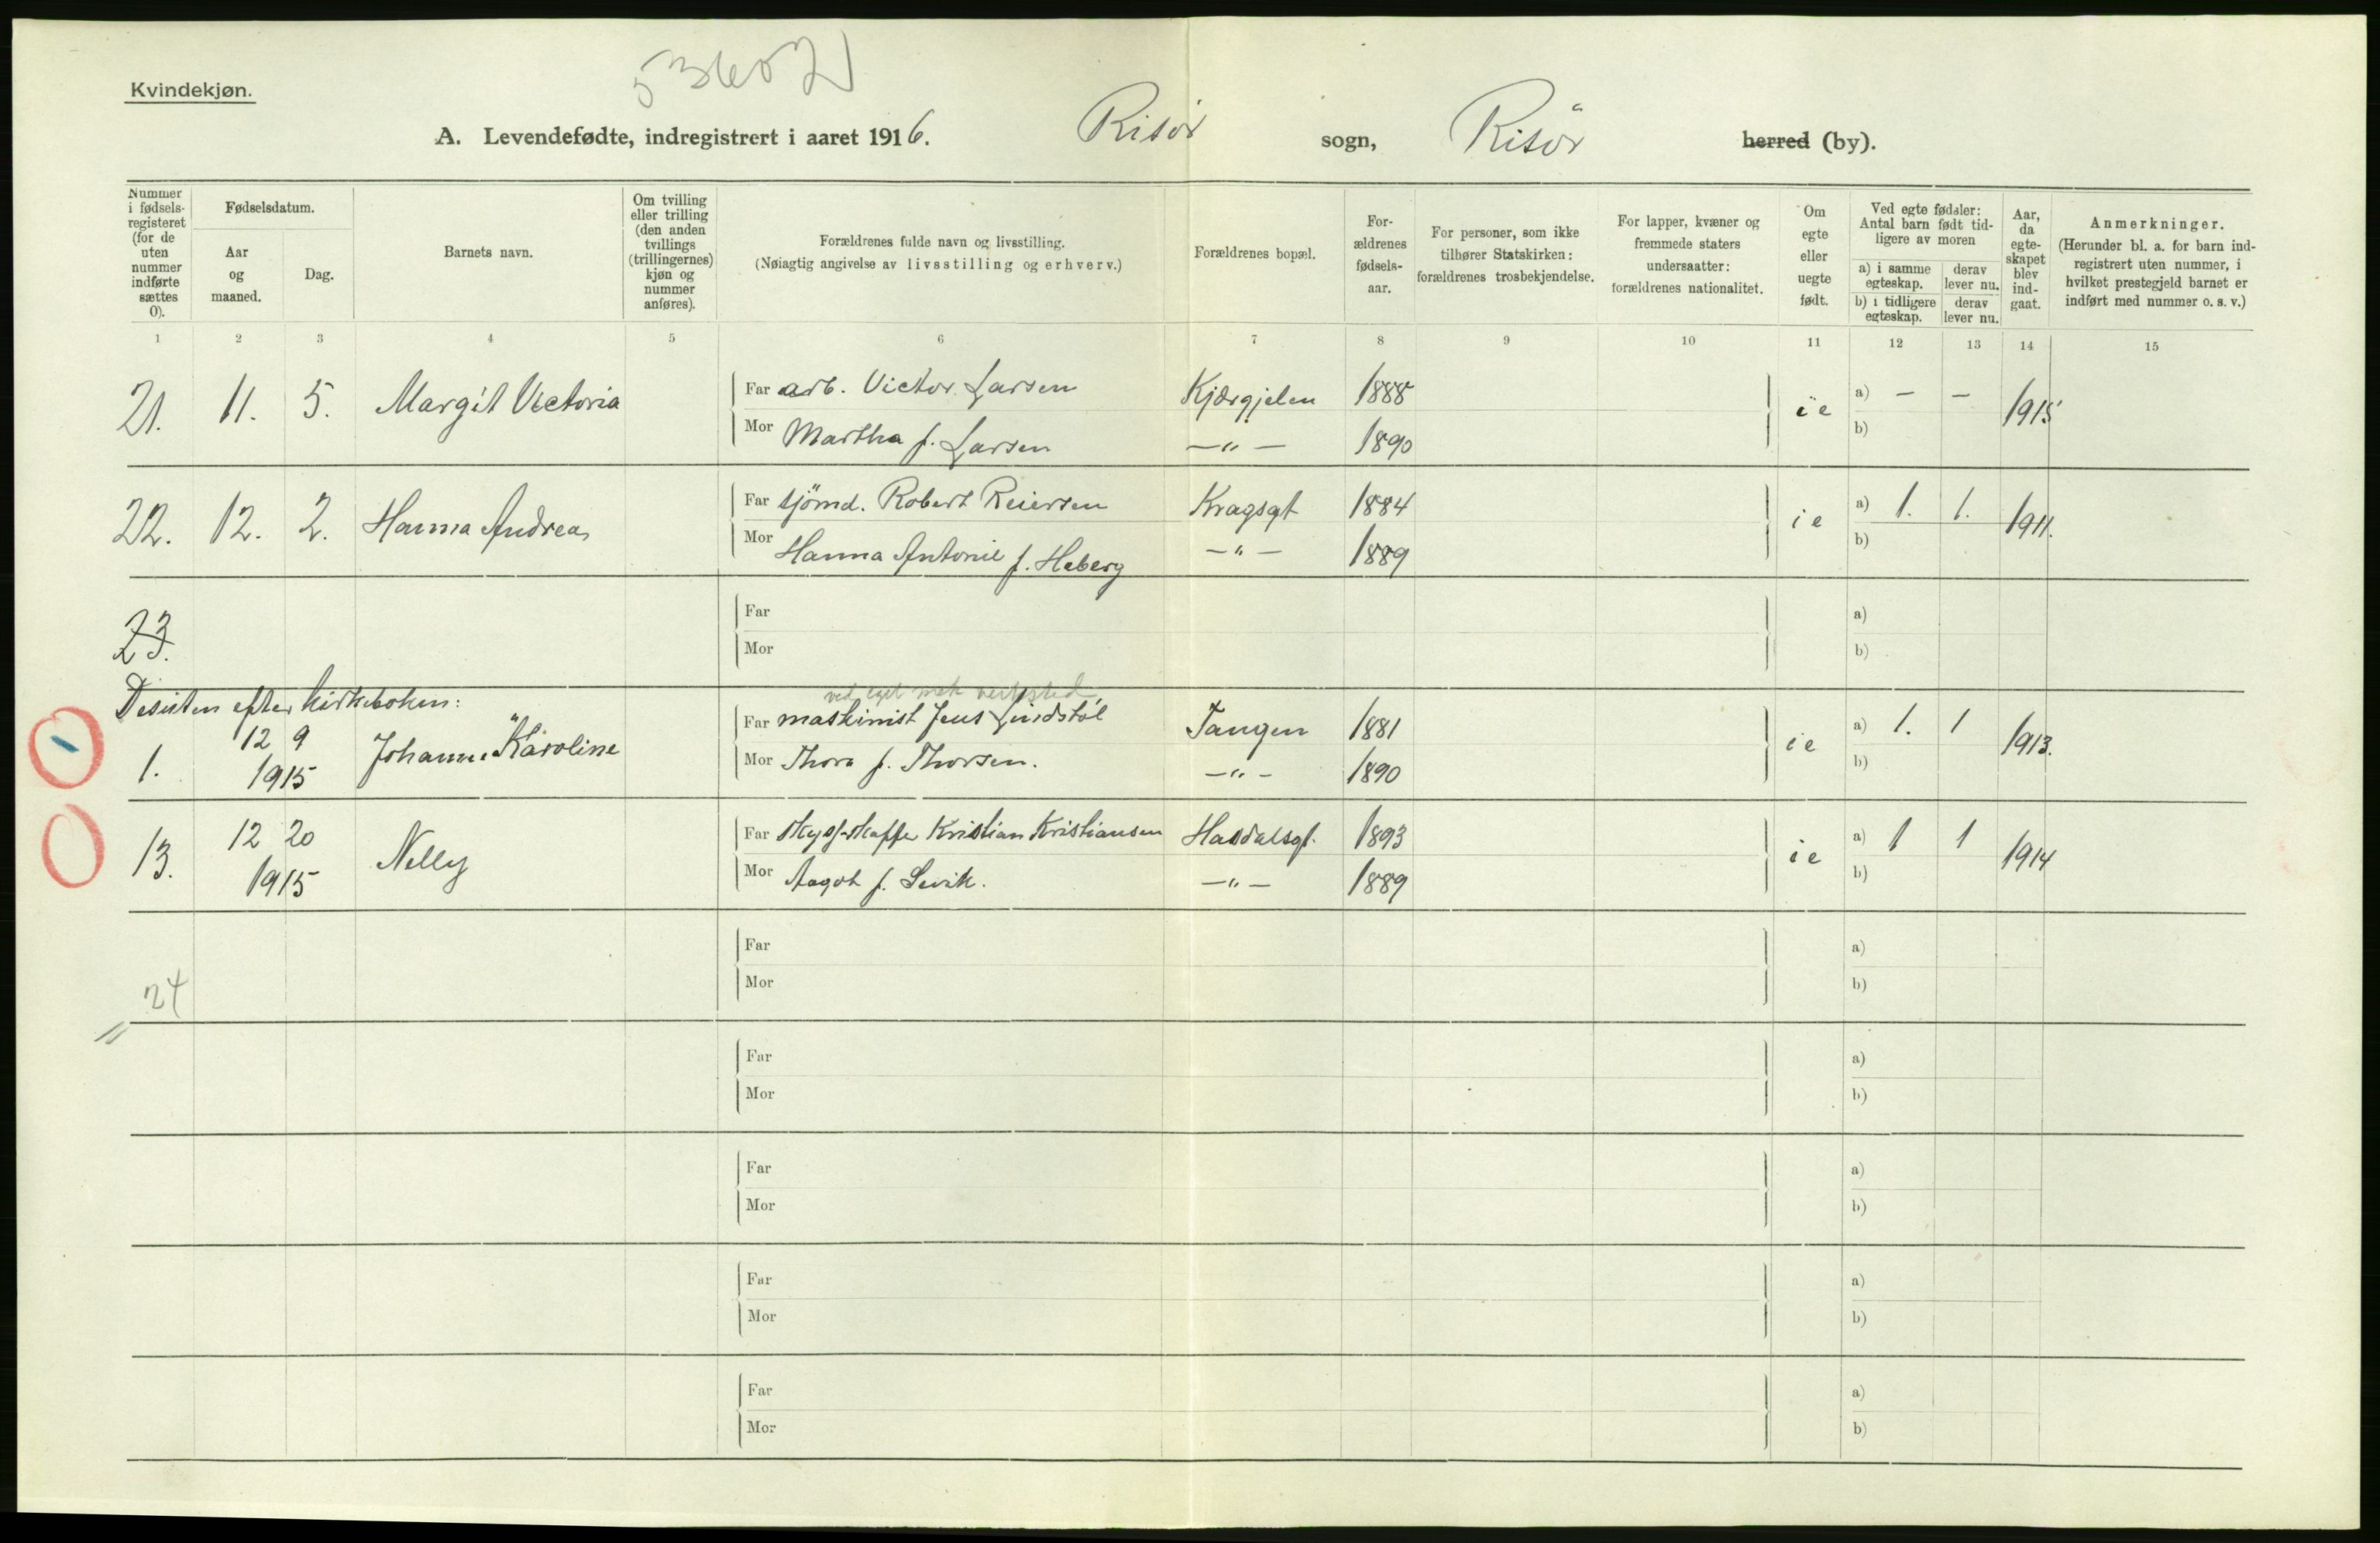 53602
Kvindekjøn.
A. Levendefødte, indregistrert i aaret 1916. Risör sogn, Risör herred (by).
Nummer i fødsels-registeret (for de uten nummer indførte sættes 0).
Fødselsdatum.
Aar og maaned.
Dag.
Barnets navn.
Om tvilling eller trilling (den anden tvillings (trillingernes) kjøn og nummer anføres).
Forældrenes fulde navn og livsstilling.
(Nøiagtig angivelse av livsstilling og erhverv.)
Forældrenes bopæl.
For-ældrenes fødsels-aar.
For personer, som ikke tilhører Statskirken: forældrenes trosbekjendelse.
For lapper, kvæner og fremmede staters undersaatter: forældrenes nationalitet.
Om egte eller uegte født.
Ved egte fødsler: Antal barn født tid-ligere av moren
a) i samme egteskap. derav lever nu.
b) i tidligere egteskap. derav lever nu.
Aar, da egte-skapet blev ind-gaat.
Anmerkninger.
(Herunder bl. a. for barn ind-registrert uten nummer, i hvilket prestegjeld barnet er indført med nummer o. s. v.)
1 2 3 4 5 6 7 8 9 10 11 12 13 14 15
21. 11. 5. Margit Victoria Far arb. Victor Larsen Kjærgjelen 1888 ie a) — — 1915
Mor Martha f. Larsen —"— 1890 b)
22. 12. 2. Hanna Andrea Far sjömd. Robert Reiersen Kragsgt 1884 ie a) 1. 1. 1911.
Mor Hanna Antonie f. Heberg —"— 1889 b)
23. Far a)
Mor b)
Desuten efter kirkeboken:
ved eget mek verksted
1. 12 9 1915 Johanne Karoline Far maskinist Jens Lindstøl Tangen 1881 ie a) 1. 1 1913.
Mor Thora f. Thorsen. —"— 1890 b)
13. 12 20 1915 Nelly Far Kristian Kristiansen Hasdalsgt. 1893 ie a) 1 1 1914
Mor Aagot f. —"— 1889 b)
Far a)
24 Mor b)
Far a)
Mor b)
Far a)
Mor b)
Far a)
Mor b)
Far a)
Mor b)